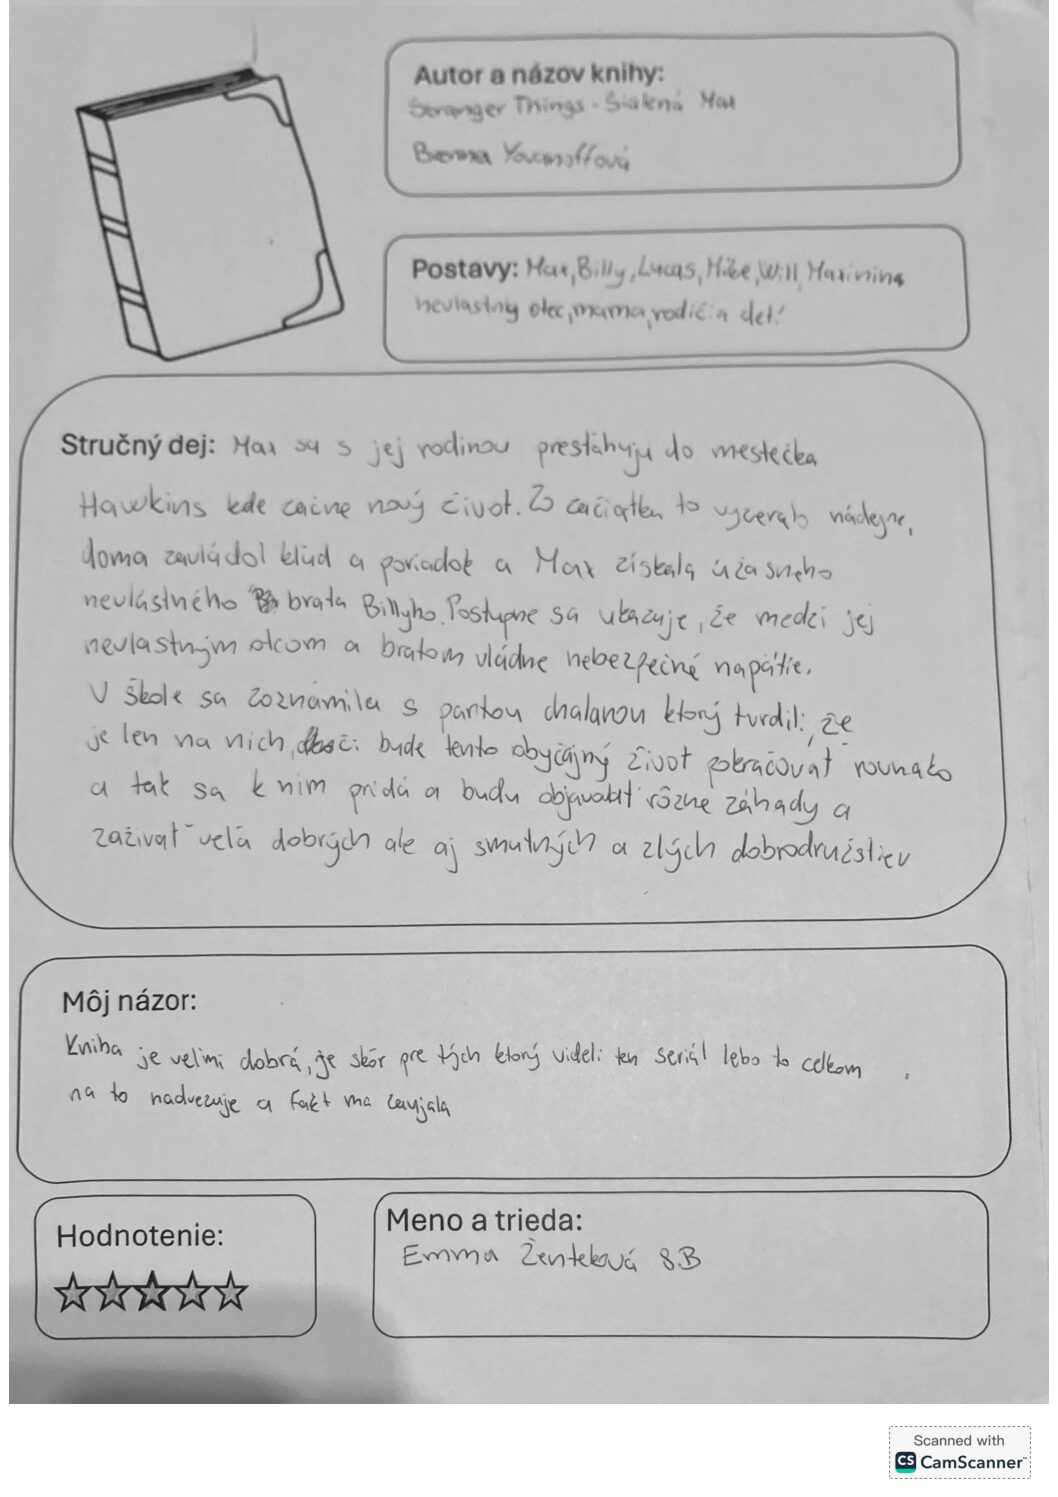 Autor a názov knihy:
Stranger Things - Šialená Max
Brenna Yovanoffová
Postavy: Max, Billy, Lucas, Mike, Will, Maxinina
nevlastny otec, mama, rodičia detí
Stručný dej: Max sa s jej rodinou prestáhuju do mestečka
Hawkins kde začne nový život. Zo začiatku to vyzeralo nádejne,
doma zavládol klud a poriadok a Max získala úžasneho
nevlástného brata Billyho. Postupne sa ukazuje, že medzi jej
nevlastným otcom a bratom vládne nebezpečné napätie.
V škole sa zoznámila s partou chalanou ktorý tvrdil: že
je len na nich, či bude tento obyčajný život pokračovať rovnako
a tak sa k nim pridá a budu objavovať rôzne záhady a
zažívať vela dobrých ale aj smutných a zlých dobrodružstiev
Môj názor:
Kniha je velmi dobrá, je skôr pre tých ktorý videli ten seriál lebo to celkom
na to nadvezuje a fakt ma zaujala
Hodnotenie:
Meno a trieda:
Emma Ženteková 8B
Scanned with
CS CamScanner